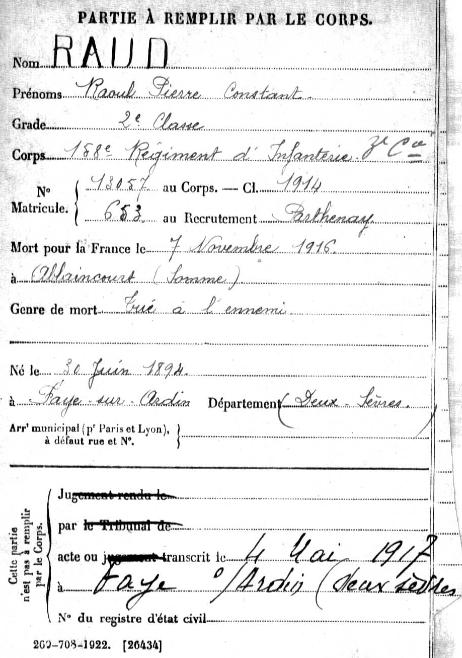 PARTIE À REMPLIR PAR LE CORPS.
Nom RAUD
Prénoms Raoul Pierre Constant
Grade 2e Classe
Corps 188e Régiment d'Infanterie 3e Cie
N° Matricule. { 13057 au Corps. — Cl. 1914
653 au Recrutement Parthenay
Mort pour la France le 7 Novembre 1916.
à Ablaincourt (Somme)
Genre de mort Tué à l'ennemi
Né le 30 Juin 1894.
à Faye-sur-Ardin Département (Deux-Sèvres.)
Arrt municipal (pr Paris et Lyon),
à défaut rue et N°.
Cette partie n'est pas à remplir par le Corps.
Jugement rendu le
par le Tribunal de
acte ou jugement transcrit le 4 Mai 1917
à Faye s/Ardin (Deux Sèvres
N° du registre d'état civil
260-708-1922. [26434]